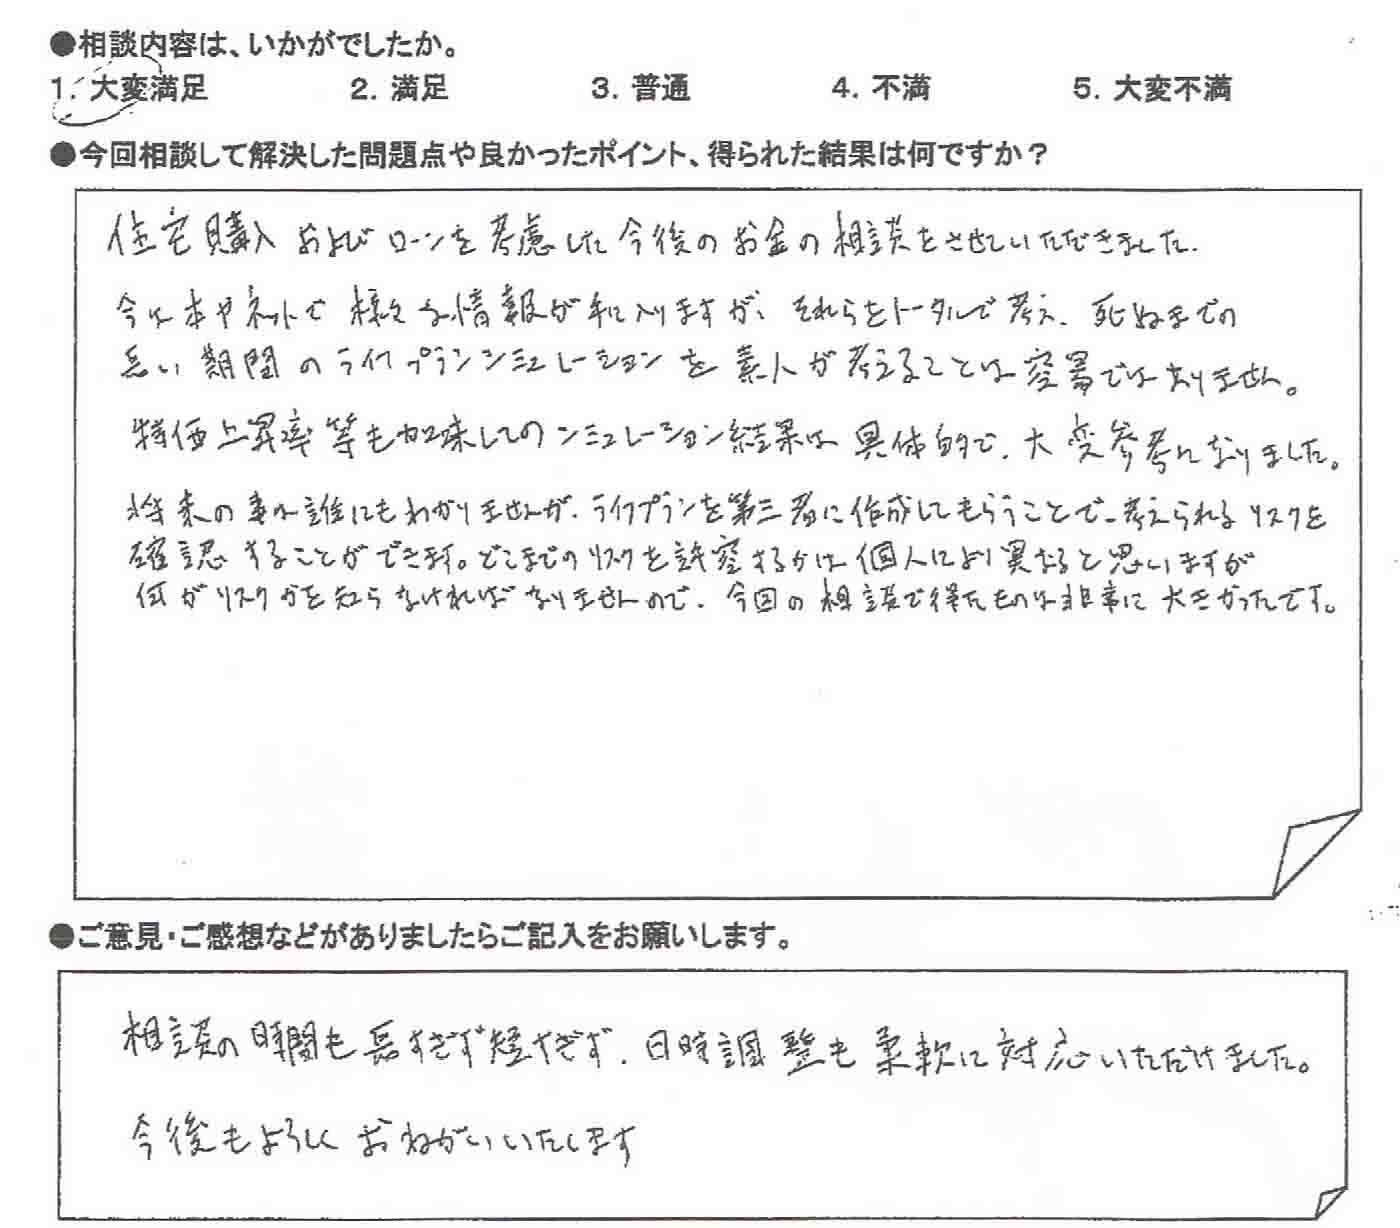 ●相談内容は、いかがでしたか。
1. 大変満足 2. 満足 3. 普通 4. 不満 5. 大変不満
●今回相談して解決した問題点や良かったポイント、得られた結果は何ですか?
住宅購入およびローンを考慮した今後のお金の相談をさせていただきました.
今は本やネットで様々な情報が手に入りますが、それらをトータルで考え、死ぬまでの
長い期間のライフプランシミュレーションを素人が考えることは容易ではありません。
物価上昇率等も加味してのシミュレーション結果は具体的で、大変参考になりました。
将来の事は誰にもわかりませんが、ライフプランを第三者に作成してもらうことで、考えられるリスクを
確認することができます。どこまでのリスクを許容するかは個人により異なると思いますが
何がリスクかを知らなければなりませんので、今回の相談で得たものは非常に大きかったです。
●ご意見・ご感想などがありましたらご記入をお願いします。
相談の時間も長すぎず短すぎず、日時調整も柔軟に対応いただけました。
今後もよろしくおねがいいたします